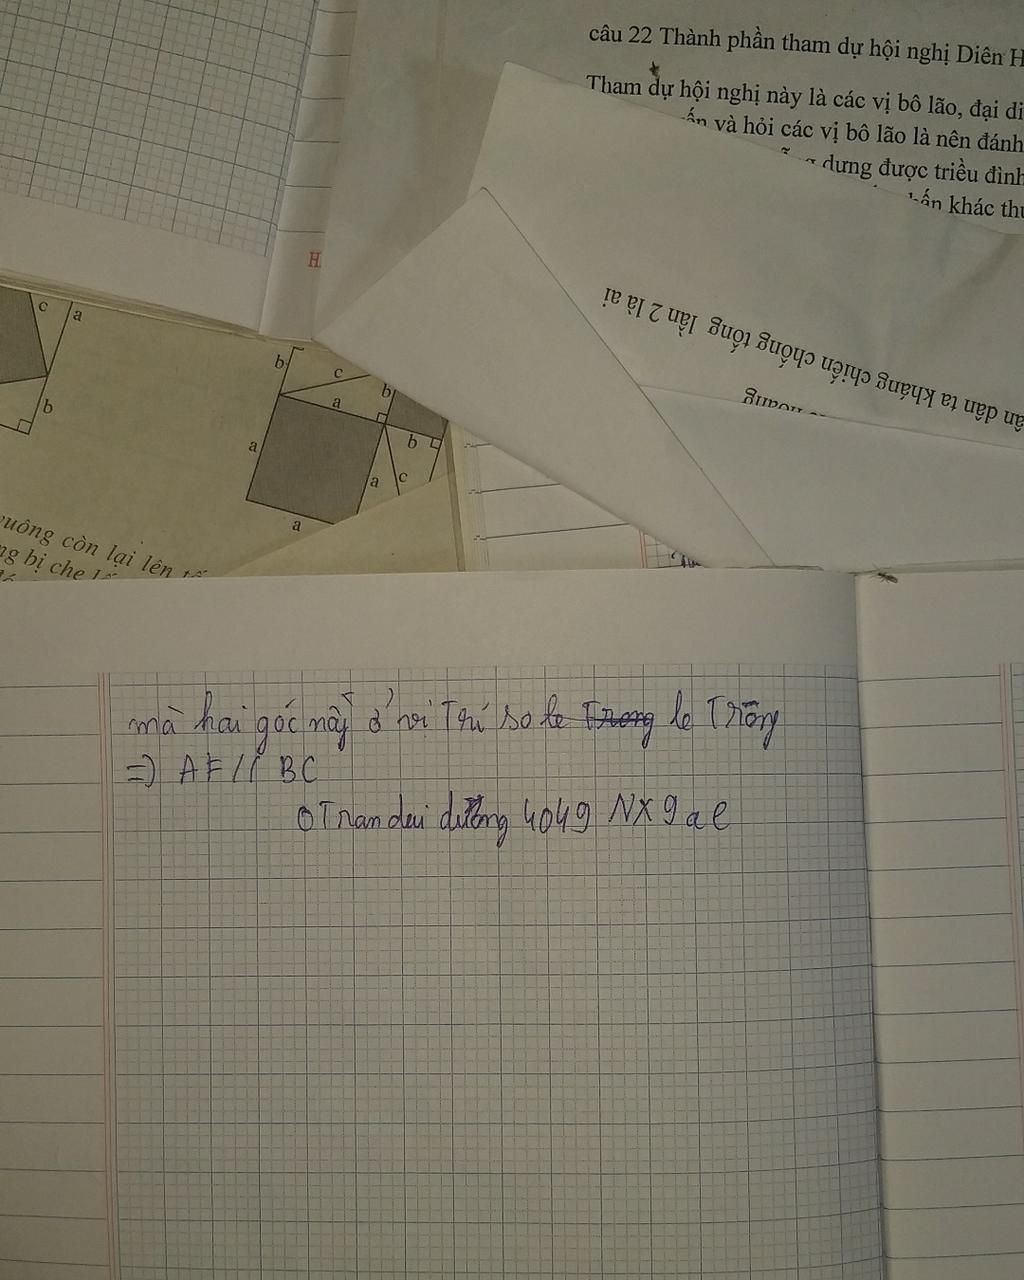 câu 22 Thành phần tham dự hội nghị Diên H
Tham dự hội nghị này là các vị bô lão, đại di
và hỏi các vị bô lão là nên đánh
dưng được triều đình
khác thu
ân dân ta kháng chiến chống tống lần 2 là ai
H
c
a
b
b
c
a
b
a
b
a
c
a
uông còn lại lên
ng bị che
mà hai góc này ở vị Trí so le Trong le Trong
=) AF // BC
4049 NX9 ae